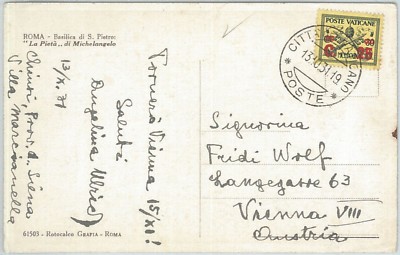 ROMA - Basilica di S. Pietro:
"La Pietà„ di Michelangelo
POSTE VATICANE
25
CITTÀ DEL VATICANO
POSTE
Tornerò Vienna 15/XI!
Saluti
Angelina Ulrich
13/X. 31
Chiusi, Prov. di Siena
Villa Marcianella
Signorina
Fridi Wolf
Langegasse 63
Vienna VIII
Austria
61503 - Rotocalco GRAFIA - ROMA